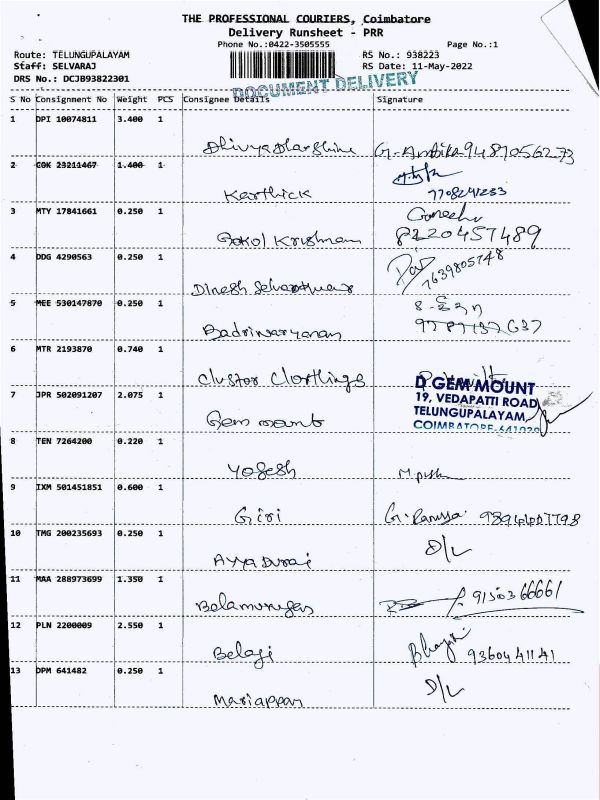 THE PROFESSIONAL COURIERS, Coimbatore
Delivery Runsheet - PRR
Phone No.:0422-3505555 Page No.:1
Route: TELUNGUPALAYAM RS No.: 938223
Staff: SELVARAJ RS Date: 11-May-2022
DRS No.: DCJB93822301
DOCUMENT DELIVERY
S No Consignment No Weight PCS Consignee Details Signature
1 DPI 10074811 3.400 1
Dhivyadharshine G. Ambika 9487056273
2 COK 23211467 1.400 1
Karthick
3 MTY 17841661 0.250 1 Ganesh
Gokol Krishnan 8220457489
4 DDG 4290563 0.250 1
7639805748
Dinesh
5 MEE 530147870 0.250 1
Badrinaryanan
6 MTR 2193870 0.740 1
Clustor Clorthings
7 JPR 502091207 2.075 1
D GEM MOUNT
19, VEDAPATTI ROAD
TELUNGUPALAYAM,
COIMBATORE-641039
Gem mount
8 TEN 7264200 0.220 1
Yogesh
9 IXM 501451851 0.600 1
Giri
10 TMG 200235693 0.250 1
D/L
Ayyadurai
11 MAA 288973699 1.350 1
Balamurugan 9150366661
12 PLN 2200009 2.550 1
Balaji 9360441141
13 DPM 641482 0.250 1
D/L
Mariappan